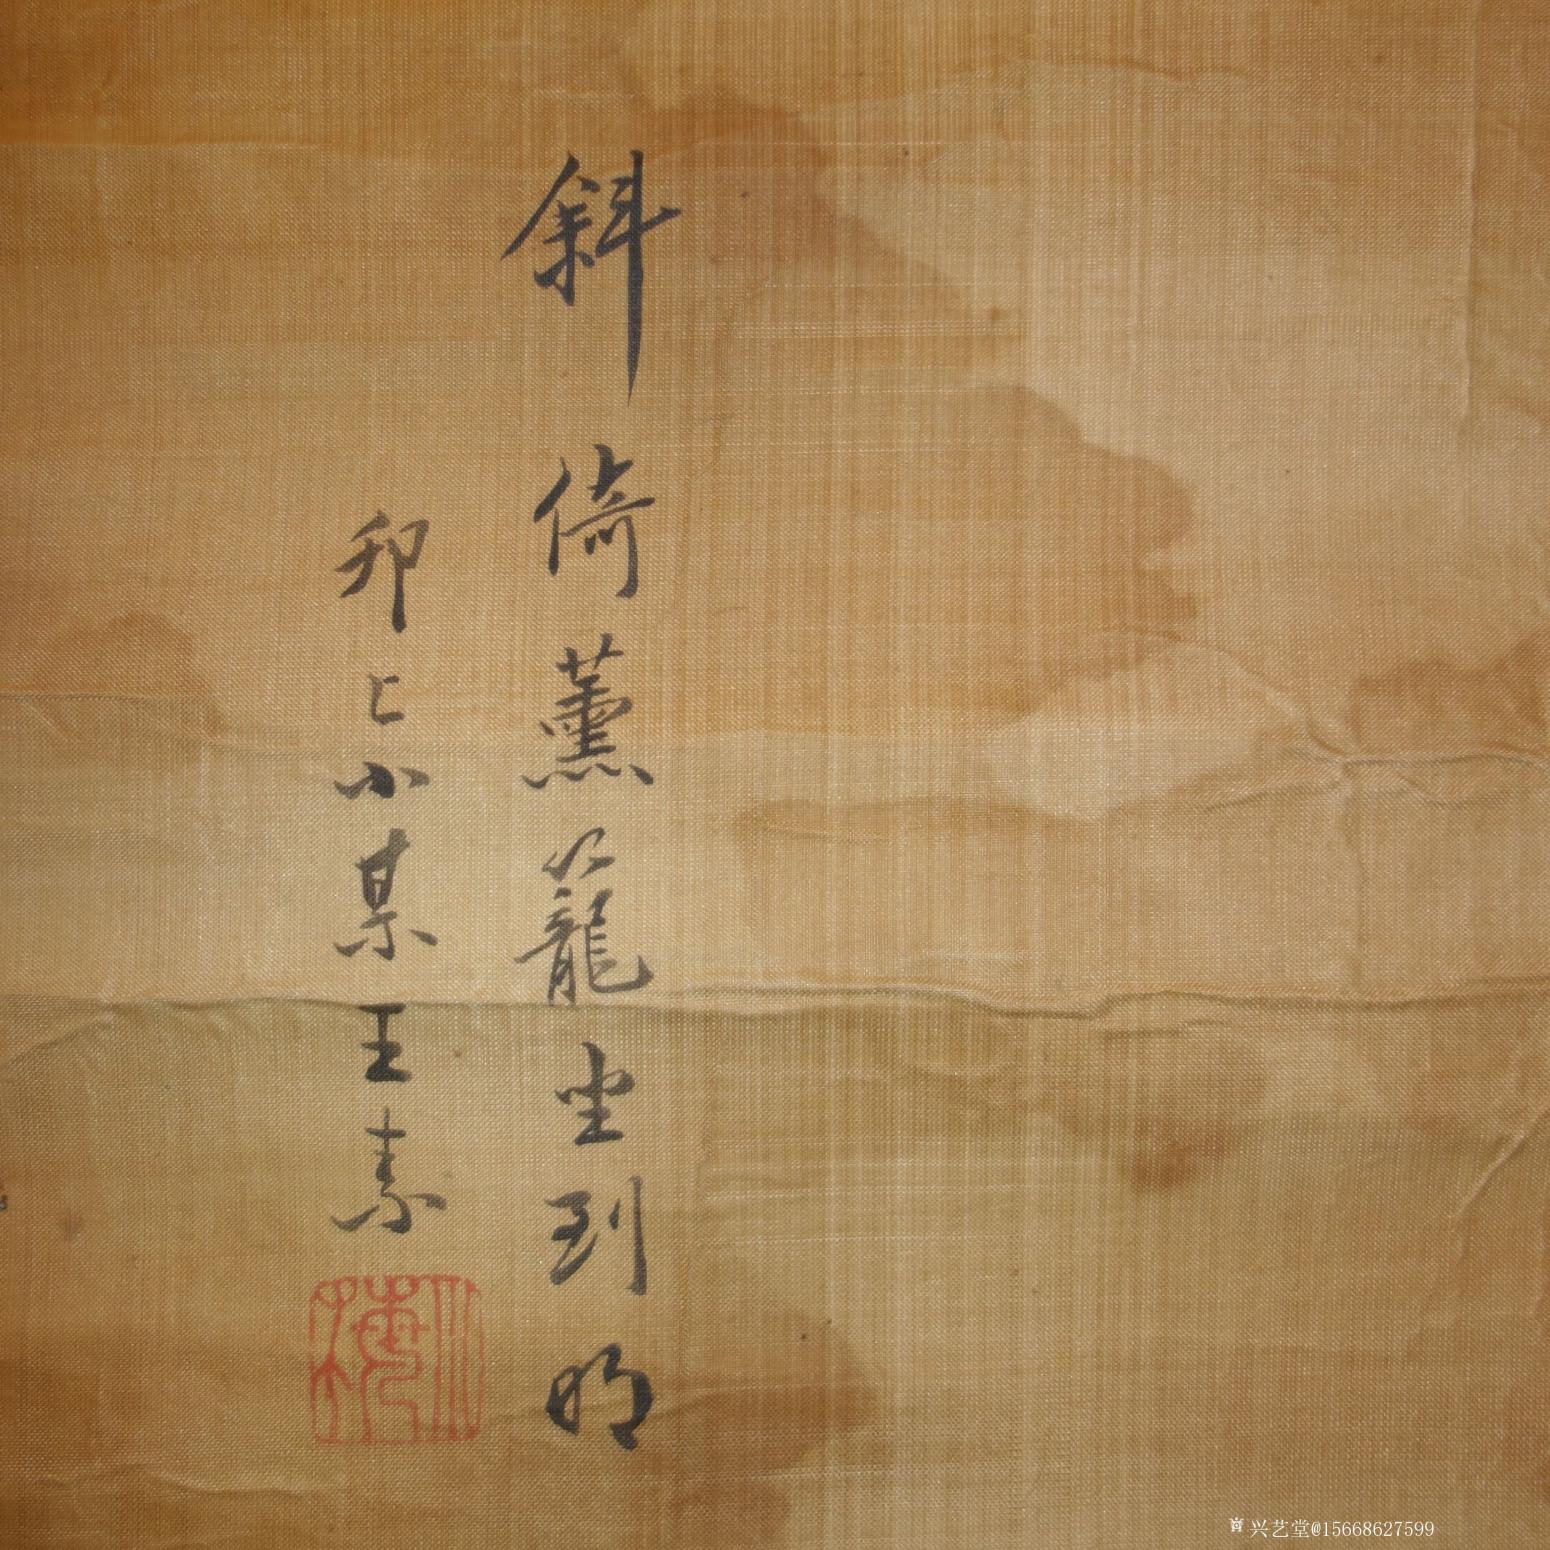 斜倚薰籠坐到明
邗上小某王素
小某
兴艺堂@15668627599